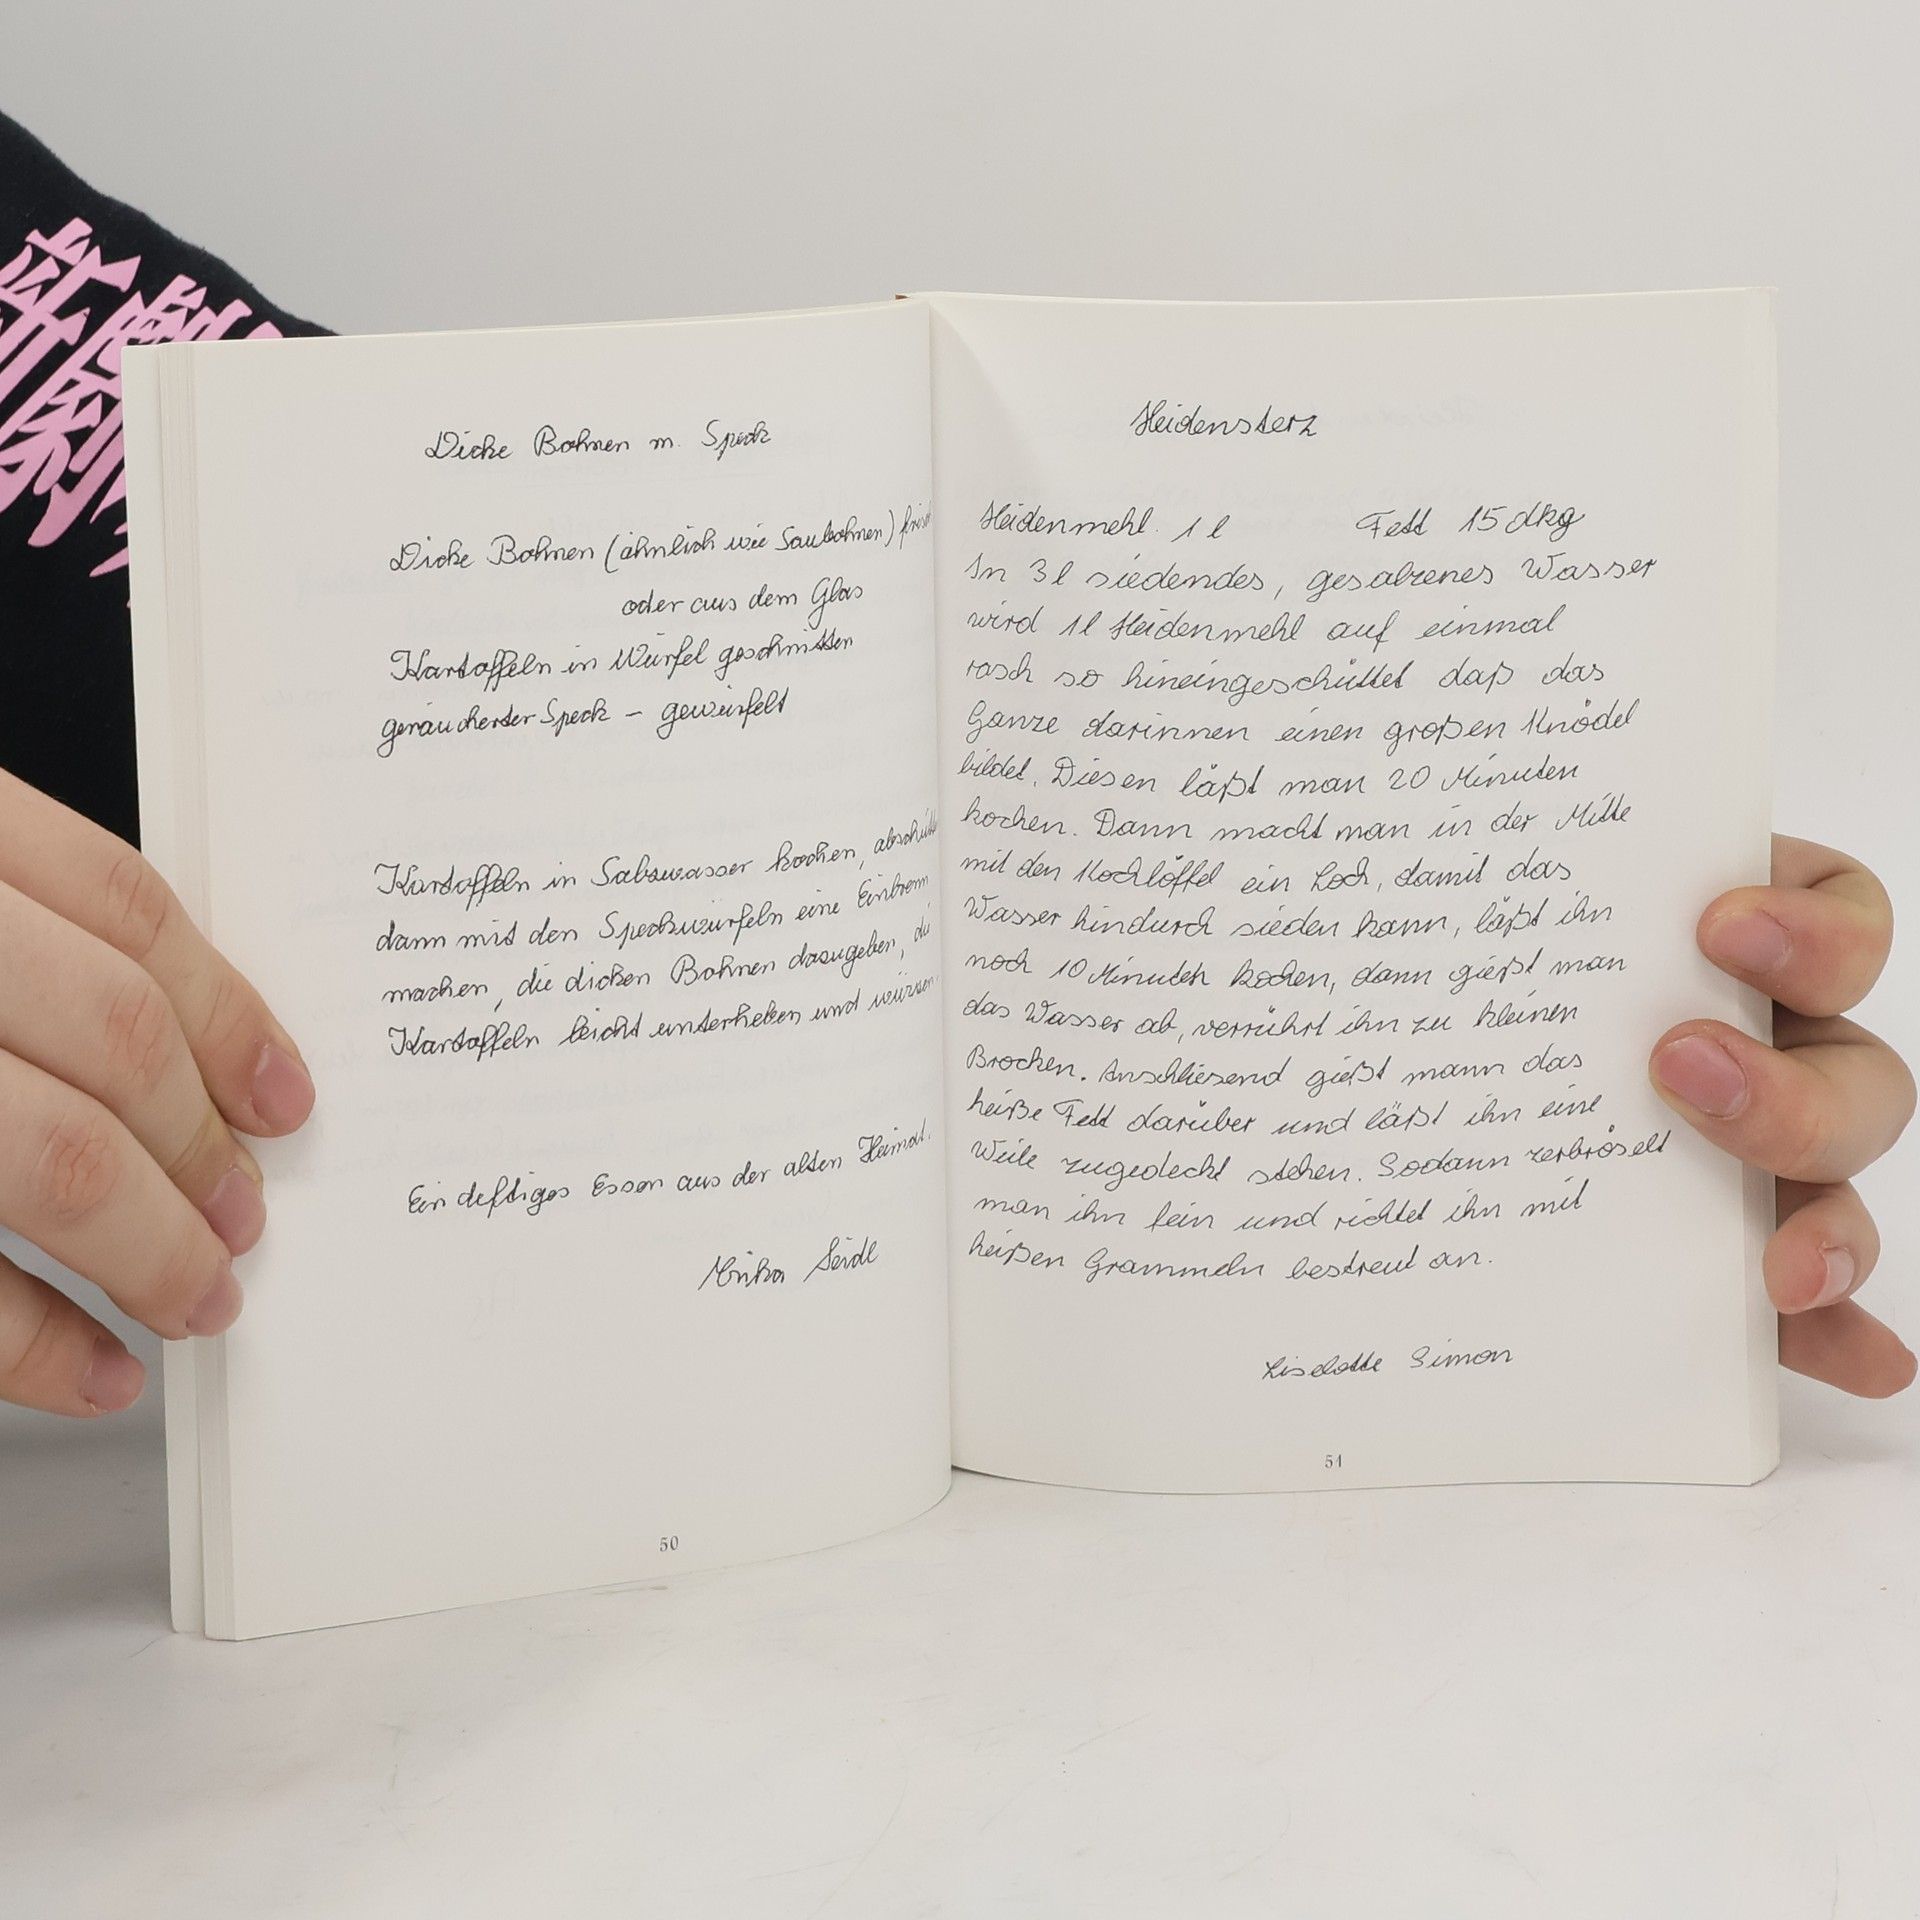 Dicke Bohnen m. Speck
Dicke Bohnen (ähnlich wie Saubohnen)
oder aus dem Glas
Kartoffeln in Würfel geschnitten
geräucherter Speck – gewürfelt
Kartoffeln in Salzwasser kochen,
dann mit den Speckwürfeln eine Einbrenn
machen, die dicken Bohnen dazugeben, die
Kartoffeln leicht unterheben und würzen.
Ein deftiges Essen aus der alten Heimat.
Seidl
50
Heidensterz
Heidenmehl. 1 l Fett 15 dkg
In 3 l siedendes, gesalzenes Wasser
wird 1 l Heidenmehl auf einmal
rasch so hineingeschüttet daß das
Ganze darinnen einen großen Knödel
bildet. Diesen läßt man 20 Minuten
kochen. Dann macht man in der Mitte
mit den Kochlöffel ein Loch, damit das
Wasser hindurch sieden kann, läßt ihn
noch 10 Minuten kochen, dann gießt man
das Wasser ab, verrührt ihn zu kleinen
Brocken. Anschliesend gießt mann das
heiße Fett darüber und läßt ihn eine
Weile zugedeckt stehen. Sodann zerbröselt
man ihn fein und richtet ihn mit
heißen Grammeln bestreut an.
Liselotte Simon
51